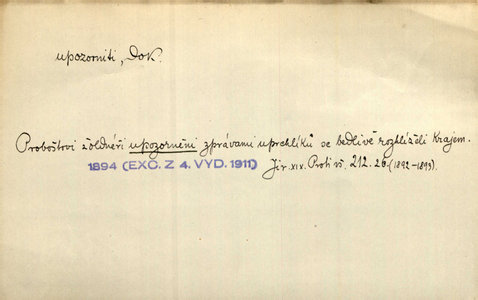 upozorniti, Dok.
Proboštovi žoldnéři upozorněni zprávami uprchlíků se bedlivě rozhlíželi krajem.
1894 (EXC. Z 4. VYD. 1911)
Jir. XIX. Proti vš. 212. 26. (1892-1893).